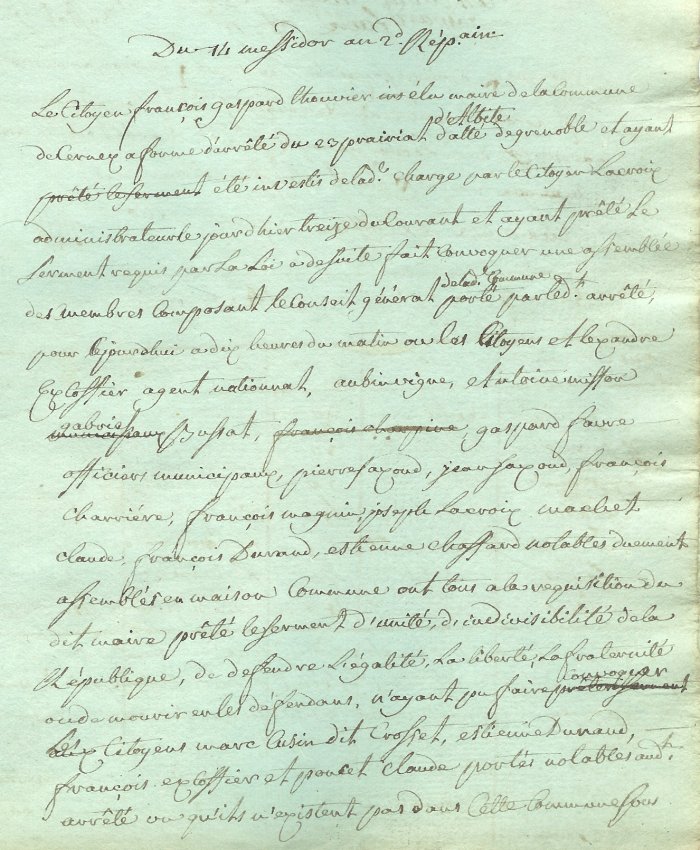 Du 14 messidor an 2d. Rép.ain
Le Citoyen françois gaspard thouvier inséla maire de la Commune
de Cernex a forme d'arrêté du 23 prairial d'Albite datté de grenoble et ayant
prêté le serment été investis de lad.e charge par le Citoyen Lacroix
administrateur le jour d'hier treize du Courant et ayant prêté Le
Serment requis par La Loi a de suite fait Convoquer une assemblée
des membres Composant le Conseil général de lad.e Commune porté par led.t arrêté,
pour lejourdhui a dix heures du matin ou les Citoyens et Alexandre
Excoffier agent national, aubin vigne, et antoine missou
municipaux gabriel Bussat, françois champive, gaspard favre
officiers municipaux, pierre saxoud, jean saxoud, françois
charriére, françois magnin, joseph Lacroix machet
claude, françois Durand, estienne chaffard notables duement
assemblés en maison Commune ont tous a la requisition du
dit maire prêté le serment d'unité, d'indivisibilité de la
République, de deffendre L'égalité, La liberté, La fraternité
ou de mourir en les défendans, n'ayant pu faire prêter le serment convoquer
aux Citoyens marc Cusin dit Crosset, estienne Durand,
françois excoffier et poncet claude portés notables aud.t
arrêté vu qu'ils n'existent pas dans Cette Commune sous